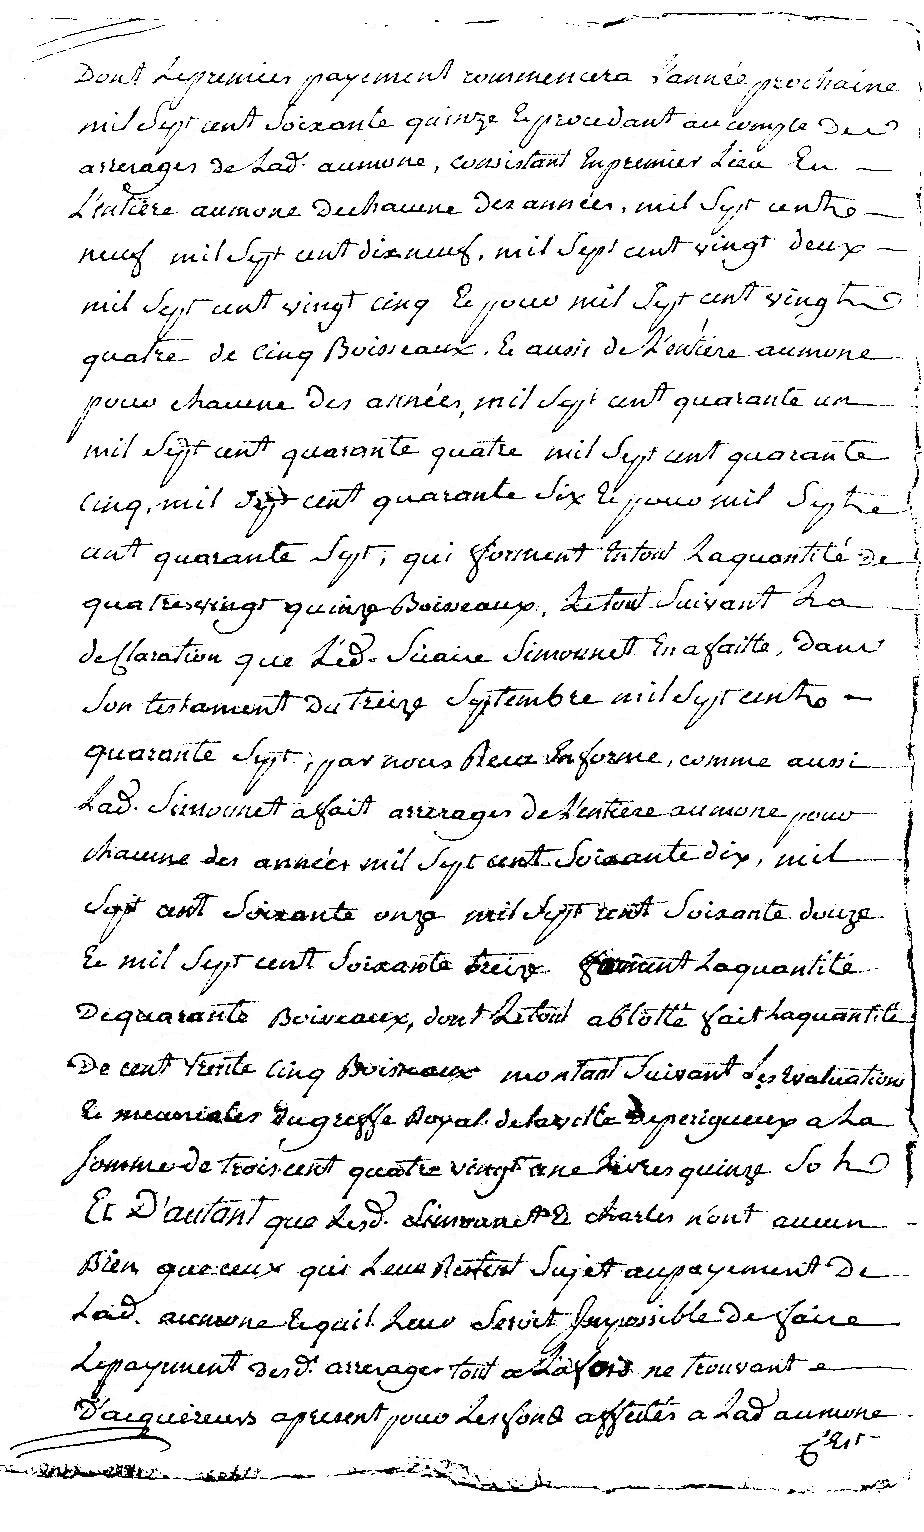 Dont Lepremier payement commencera L'année prochaine
mil Sept cent Soixante quinze Et procedant au compte des
arrerages de Lad. aumone, consistant En premier Lieu En
L'entiere aumone de chacune des années, mil Sept cent
neuf mil Sept cent dix neuf, mil Sept cent vingt deux
mil Sept cent vingt cinq Et pour mil Sept cent vingt
quatre de Cinq Boisseaux. Et aussi de L'entiere aumone
pour chacune des années, mil Sept cent quarante un
mil Sept cent quarante quatre mil Sept cent quarante
Cinq, mil Sept cent quarante Six Et pour mil Sept
cent quarante Sept, qui forment En tout La quantité de
quatre vingt quinze Boisseaux, Le tout Suivant La
declaration que Led. Sicaire Simounet En a faitte, dans
Son testament du treize Septembre mil Sept cent
quarante Sept, par nous Reçu En forme, comme aussi
Lad. Simounet a fait arrerages de L'entiere aumone pour
chacune des années mil Sept cent Soixante dix, mil
Sept cent Soixante onze mil Sept cent Soixante douze
Et mil Sept cent Soixante treize formant La quantité
De quarante Boisseaux, dont Le tout a blotté fait La quantité
De cent trente Cinq Boisseaux montant Suivant Les Evaluations
Et mercuriales du greffe Royal de la ville de perigueux a La
Somme de trois cent quatre vingt une Livres quinze Sols
Et D'autant que Lesd. Simounet Et charles n'ont aucun
Bien que ceux qui Leur Restent Sujet au payement de
Lad. aumone Et quil Leur Seroit Impossible de faire
Le payement desd. arrerages tout a La fois ne trouvant
D'acquereurs a present pour Les fond affectés a Lad aumone
C'Est